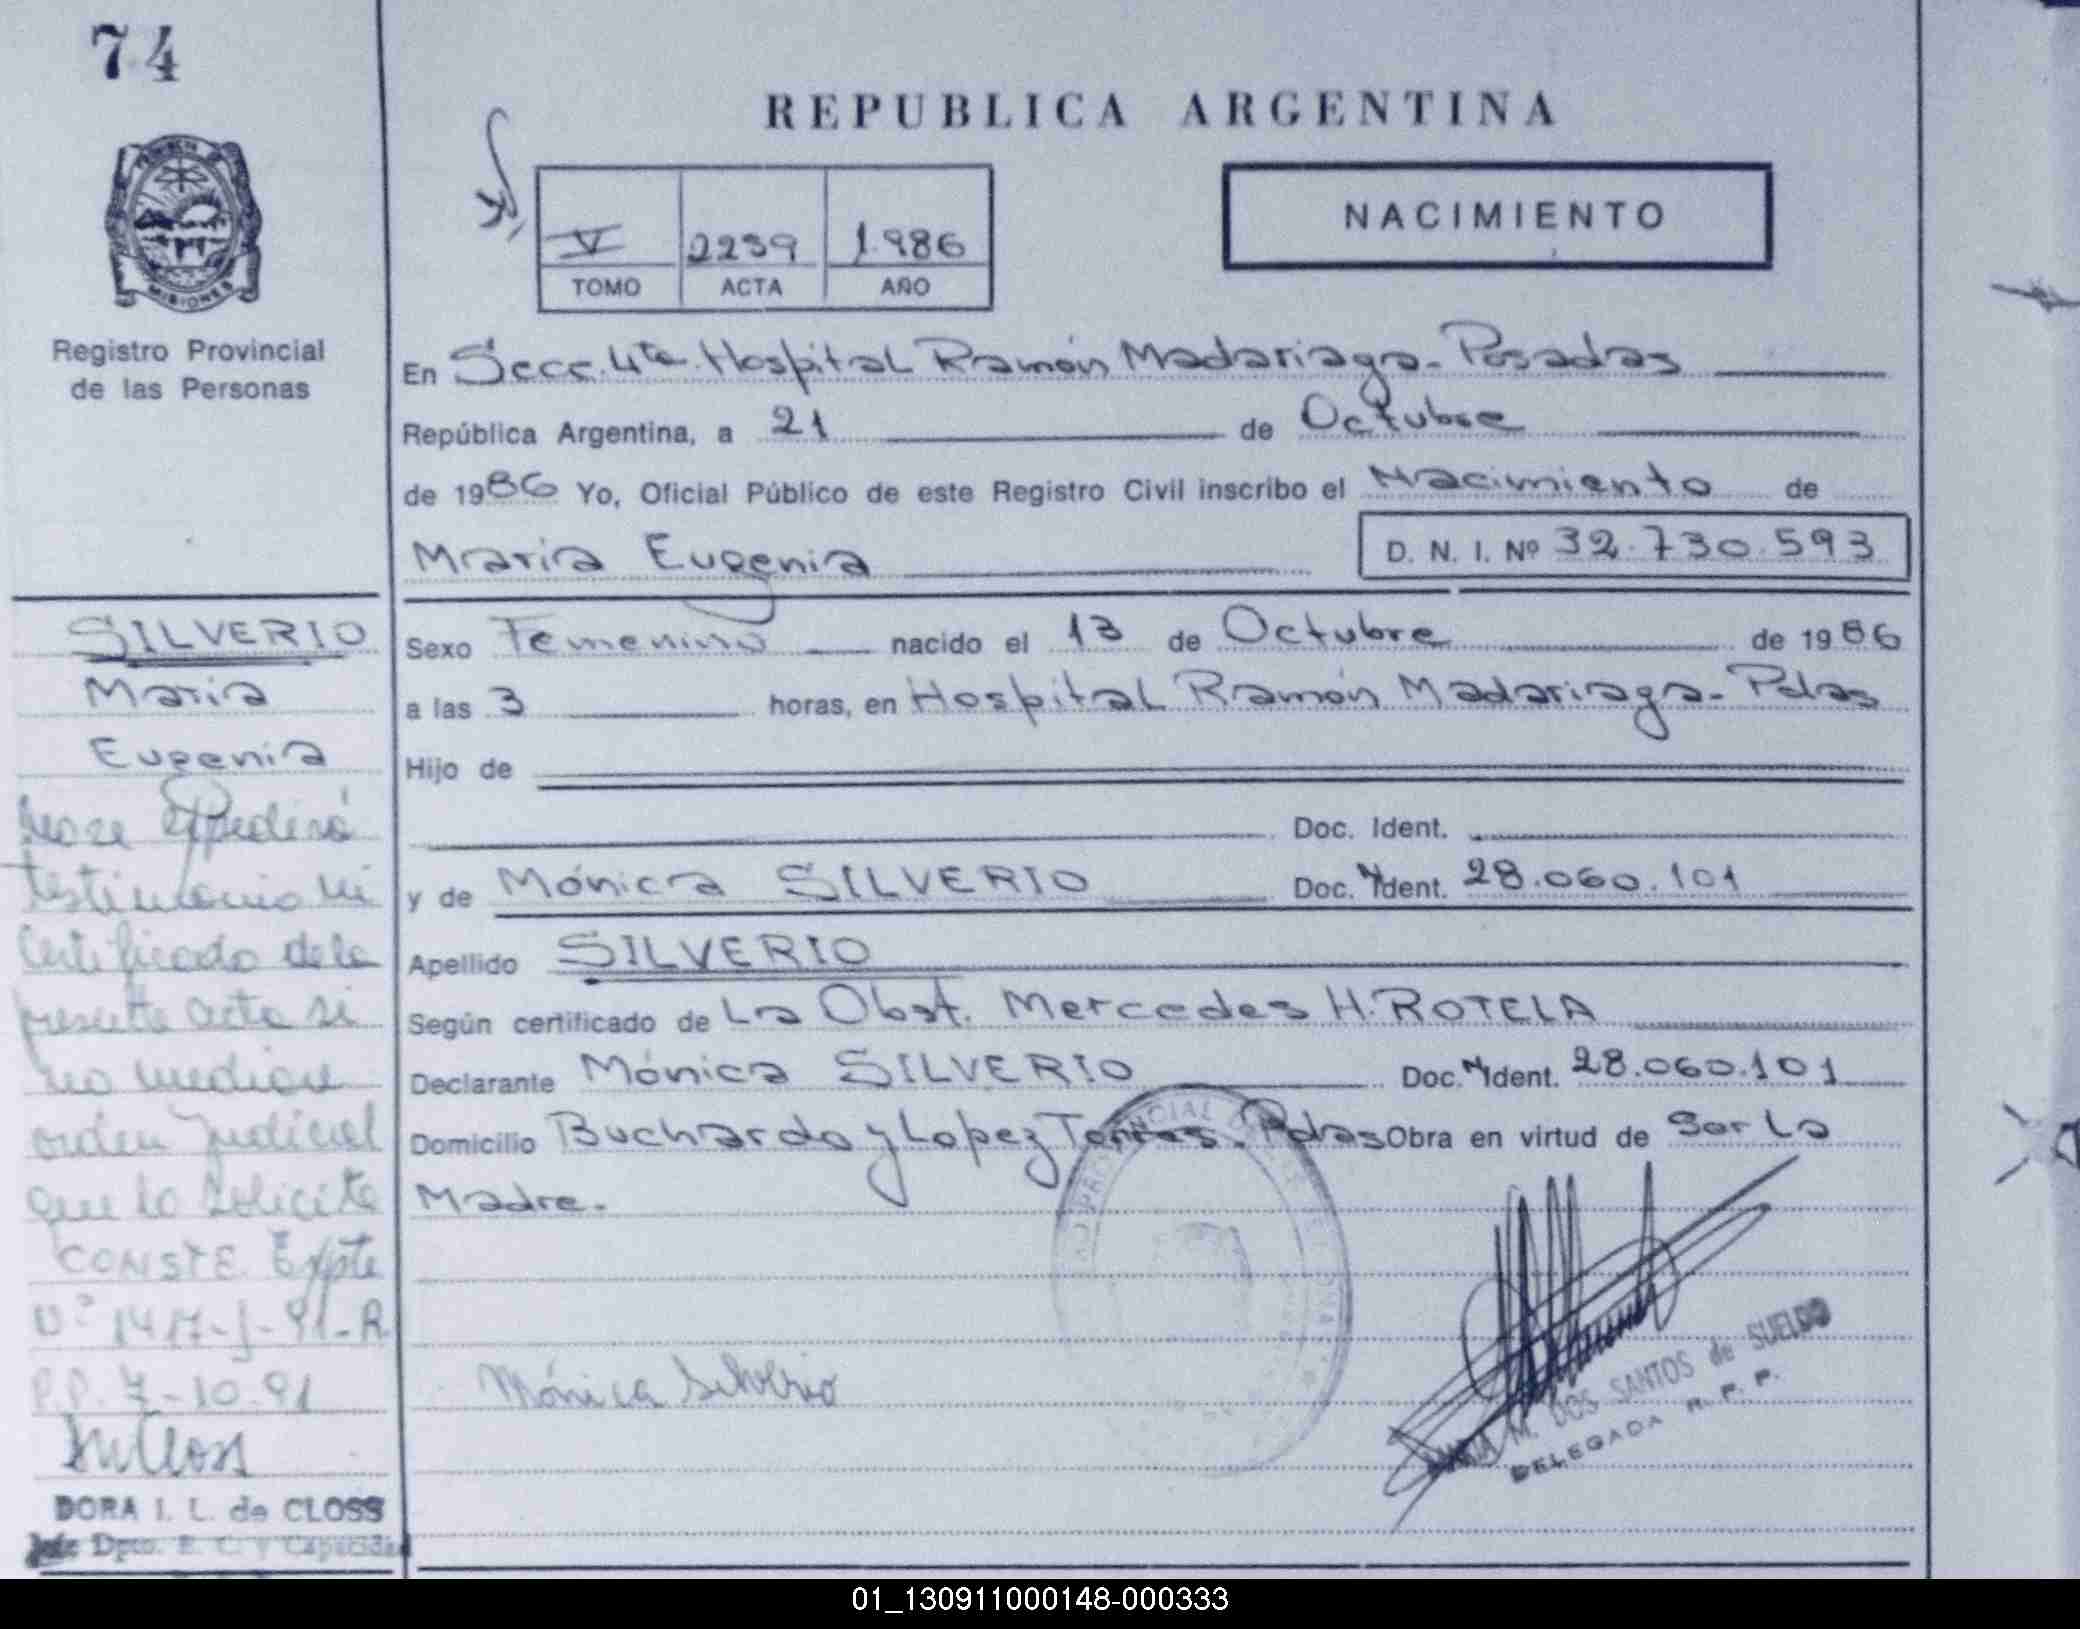 74
REPUBLICA ARGENTINA
MISIONES
V 2239 1.986
TOMO ACTA AÑO
NACIMIENTO
Registro Provincial
de las Personas
En Secc. 4ta. Hospital Ramón Madariaga- Posadas
República Argentina, a 21 de Octubre
de 1986 Yo, Oficial Público de este Registro Civil inscribo el Nacimiento de
Maria Eugenia D. N. I. Nº 32.730.593
Sexo Femenino nacido el 13 de Octubre de 1986
a las 3 horas, en Hospital Ramón Madariaga- Pdas
Hijo de
Doc. Ident.
y de Mónica SILVERIO Doc. N Ident. 28.060.101
Apellido SILVERIO
Según certificado de La Obst. Mercedes H. ROTELA
Declarante Mónica SILVERIO Doc. N Ident. 28.060.101
Domicilio Buchardo y Lopez Torres. Pdas Obra en virtud de Ser La
Madre.
Mónica Silverio
M. DOS SANTOS de SUELDO
DELEGADA R. P. P.
SILVERIO
Maria
Eugenia
No se Expedirá
testimonio ni
Certificado de la
presente acta si
no mediare
orden Judicial
que lo Solicite
CONSTE. Expte
Nº 1417-J-91-R
P.P. 7-10-91
DORA I. L. de CLOSS
Jefe Dpto. E. C. y Capacidad
01_130911000148-000333